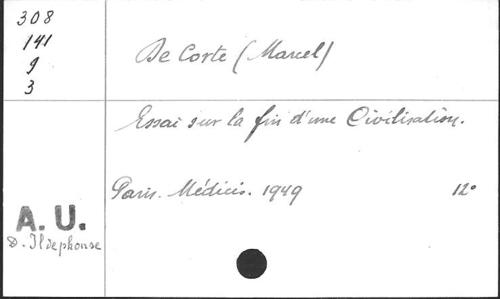 308
141
9
3
De Corte (Marcel)
Essai sur la fin d'une Civilisation.
Paris. Médicis. 1949 12°
A. U.
D. Ildephonse